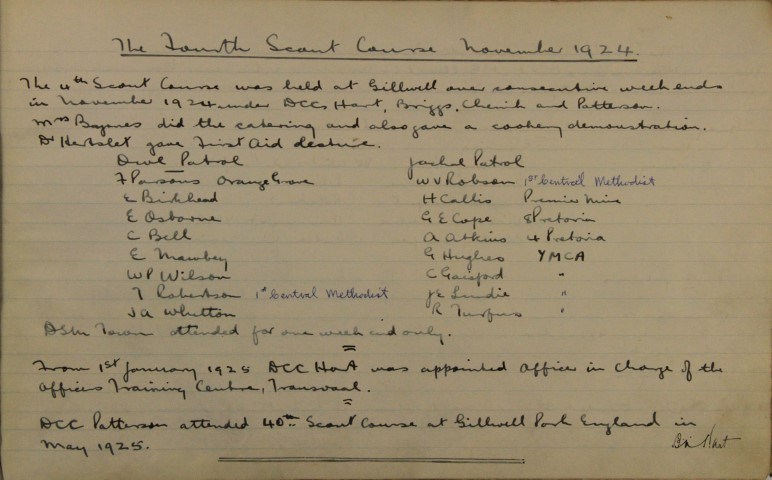 The Fourth Scout Course November 1924.
The 4th Scout Course was held at Gillwell over consecutive week ends
in November 1924 under DCCs Hart, Briggs, and Patterson.
Mrs Baynes did the catering and also gave a cookery demonstration.
Dr Hertslet gave First Aid lecture.
Owl Patrol
F Parsons Orange Grove
E Birkhead
E Osborne
C Bell
E Mawbey
WP Wilson
T Robertson 1st Central Methodist
JA Whitton
Jackal Patrol
WV Robson 1st Central Methodist
H Callis Premier Mine
G E Cope 8 Pretoria
A Atkins 4 Pretoria
G Hughes YMCA
C Gaisford "
JE Lundie "
R "
DSM Town attended for one week end only.
From 1st January 1925 DCC Hart was appointed Officer in Charge of the
Officers Training Centre, Transvaal.
DCC Patterson attended 40th Scout Course at Gillwell Park England in
May 1925.
Hart